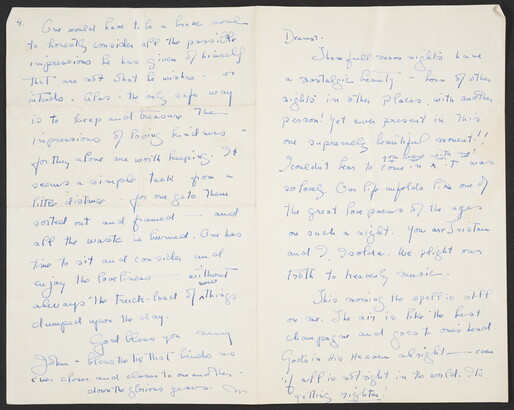 4.
One would have to be a brave soul
to honestly consider all the possible
impressions he has given of himself
that are not what he wishes - or
intends. Alas - the only safe way
is to keep and treasure the
impressions of loving kindness -
for they alone are worth keeping. It
seems a simple task from a
little distance - for one gets them
sorted out and framed - and
all the waste is burned. One has
time to sit and consider and
enjoy the loveliness - without
always the truck-load of new things
dumped upon the day.
God bless you my
John - bless the tie that binds us
ever closer and closer to one another -
down the glorious years. M
Dearest -
These full moon nights have
a nostalgic beauty - born of other
nights in other places, with another
person! Yet ever present in this
one supremely beautiful moment!!
I couldn't bear to come in & it was
so lovely. Our life unfolds like one of
the great love poems of the ages
on such a night. You are Tristan
and I, Isolde. We plight our
troth to heavenly music.
This morning the spell is still
on me. The air is like the best
champagne and goes to one's head.
God's in His Heaven alright - even
if all is not right in the world. It's
getting righter!